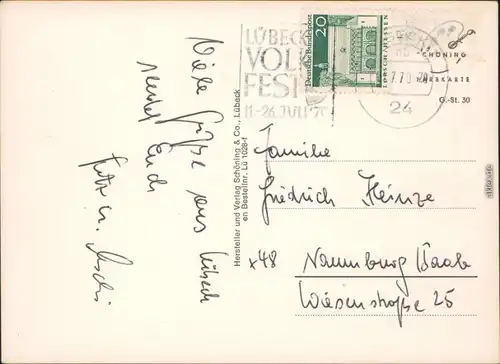 Viele Grüße aus Lübeck
sendet Euch
Fritz u.
Hersteller und Verlag Schöning & Co., Lübeck
en Bestellnr. Lü 1028-f
LÜBECK
VOLKS
FEST
11.-26. JULI 70
20
Deutsche Bundespost
LORSCH/HESSEN
7.70
24
SCHÖNING
FARBKARTE
G.-St. 30
Familie
Friedrich Heinze
x48 Naumburg Saale
Wiesenstraße 25